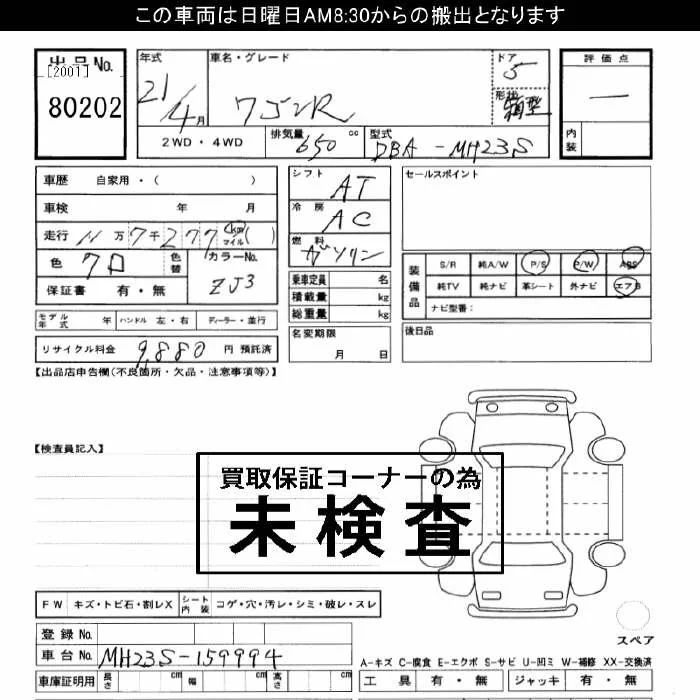 この車両は日曜日AM8:30からの搬出となります
出品No.
[2001]
80202
年式
21/4月
車名・グレード
ワゴンR
ドア
5
形状
箱型
評価点
内装
2WD・4WD
排気量 650 cc
型式 DBA-MH23S
車歴 自家用・( )
車検 年 月
走行 11万7千277 km マイル ( )
色 クロ 色替 カラーNo. ZJ3
保証書 有・無
シフト AT
冷房 AC
燃料 ガソリン
乗車定員 名
積載量 kg
総重量 kg
セールスポイント
装備品
S/R 純A/W P/S P/W ABS
純TV 純ナビ 革シート 外ナビ エアB
ナビ型番:
モデル年式 年 ハンドル 左・右 ディーラー・並行
名変期限 月 日
後日品
リサイクル料金 9,880 円 預託済
【出品店申告欄(不良箇所・欠品・注意事項等)】
【検査員記入】
買取保証コーナーの為
未検査
FW キズ・トビ石・割レX シート内装 コゲ・穴・汚レ・シミ・破レ・スレ
登録No.
車台No. MH23S-159994
車庫証明用 長さ cm 幅 cm 高さ cm
スペア
A-キズ C-腐食 E-エクボ S-サビ U-凹ミ W-補修 XX-交換済
工具 有・無 ジャッキ 有・無